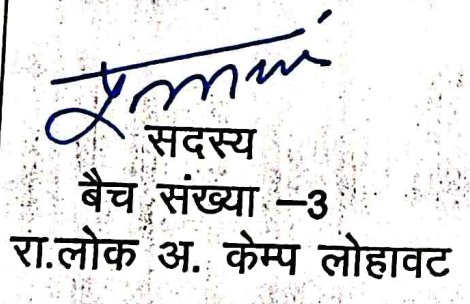 सदस्य
बैच संख्या –3
रा.लोक अ. केम्प लोहावट